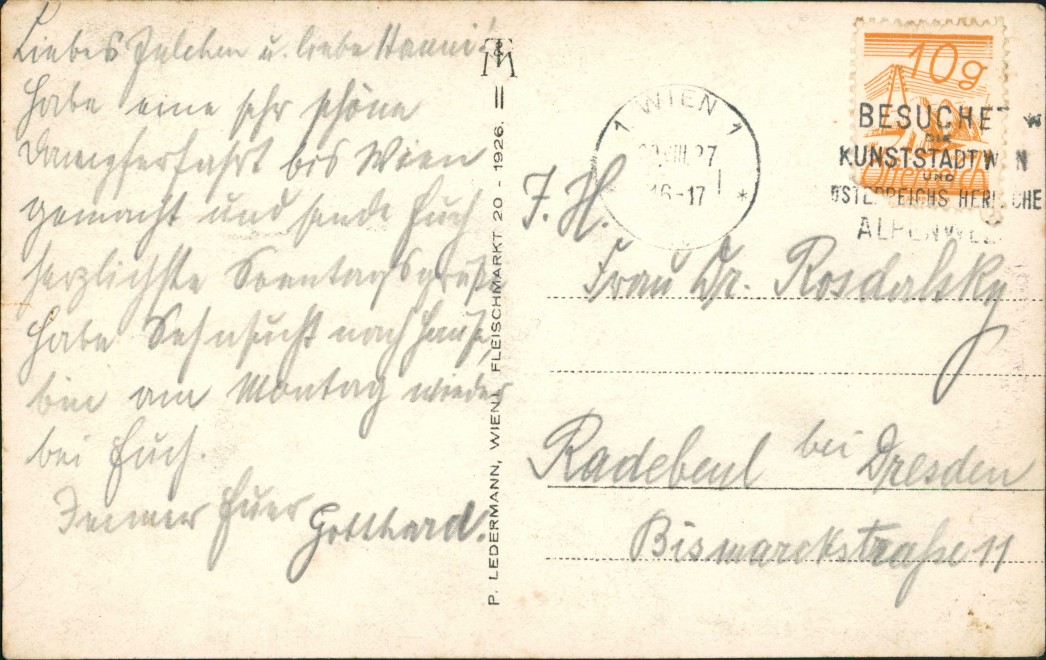 Liebes Julchen u. liebe Hanni!
habe eine sehr schöne
Dampferfahrt bis Wien
gemacht und sende Euch
herzlichste Sonntagsgrüße
habe Sehnsucht nach Hause,
bin am Montag wieder
bei Euch.
Immer Euer
Gotthard.
P. LEDERMANN, WIEN I, FLEISCHMARKT 20 - 1926.
1 WIEN 1
VIII.27
16-17 *
10g
Österreich
BESUCHET
DIE
KUNSTSTADT WIEN
UND
ÖSTERREICHS HERRLICHE
ALPENWELT
F. H.
Frau Dr. Rosdalsky
Radebeul bei Dresden
Bismarckstraße 11